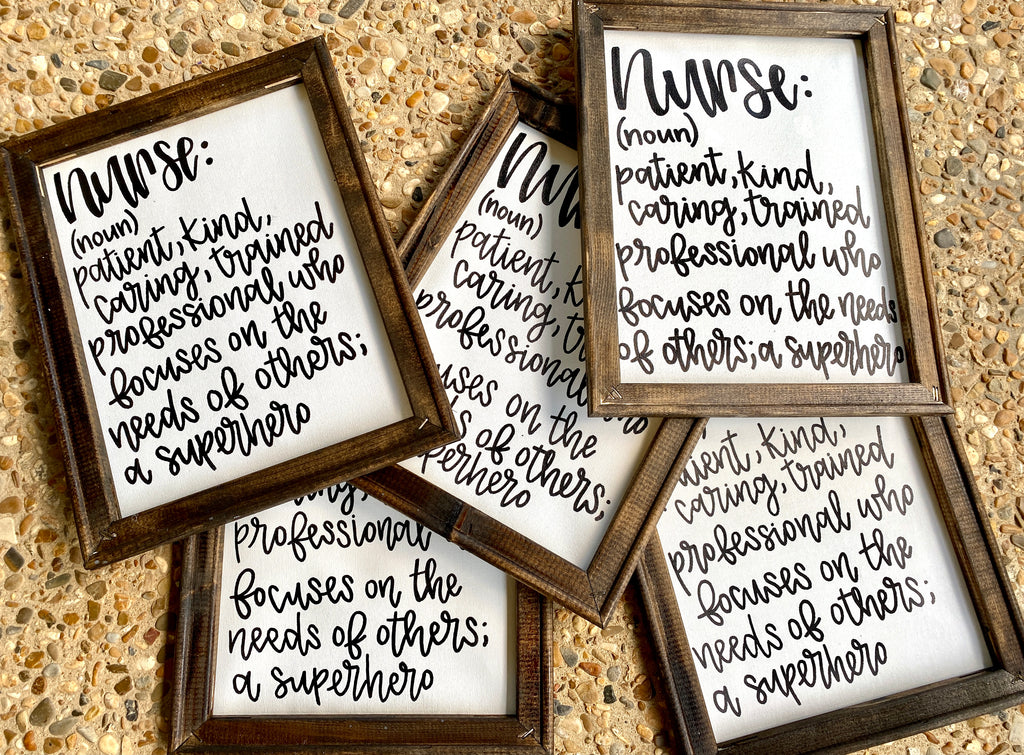 nurse:
(noun)
patient, kind,
caring, trained
professional who
focuses on the
needs of others;
a superhero
(noun)
patient,
caring,
professional
on the
of others;
nurse:
(noun)
patient, kind,
caring, trained
professional who
focuses on the needs
of others; a superhero
professional
focuses on the
needs of others;
a superhero
kind,
caring, trained
professional who
focuses on the
needs of others;
a superhero